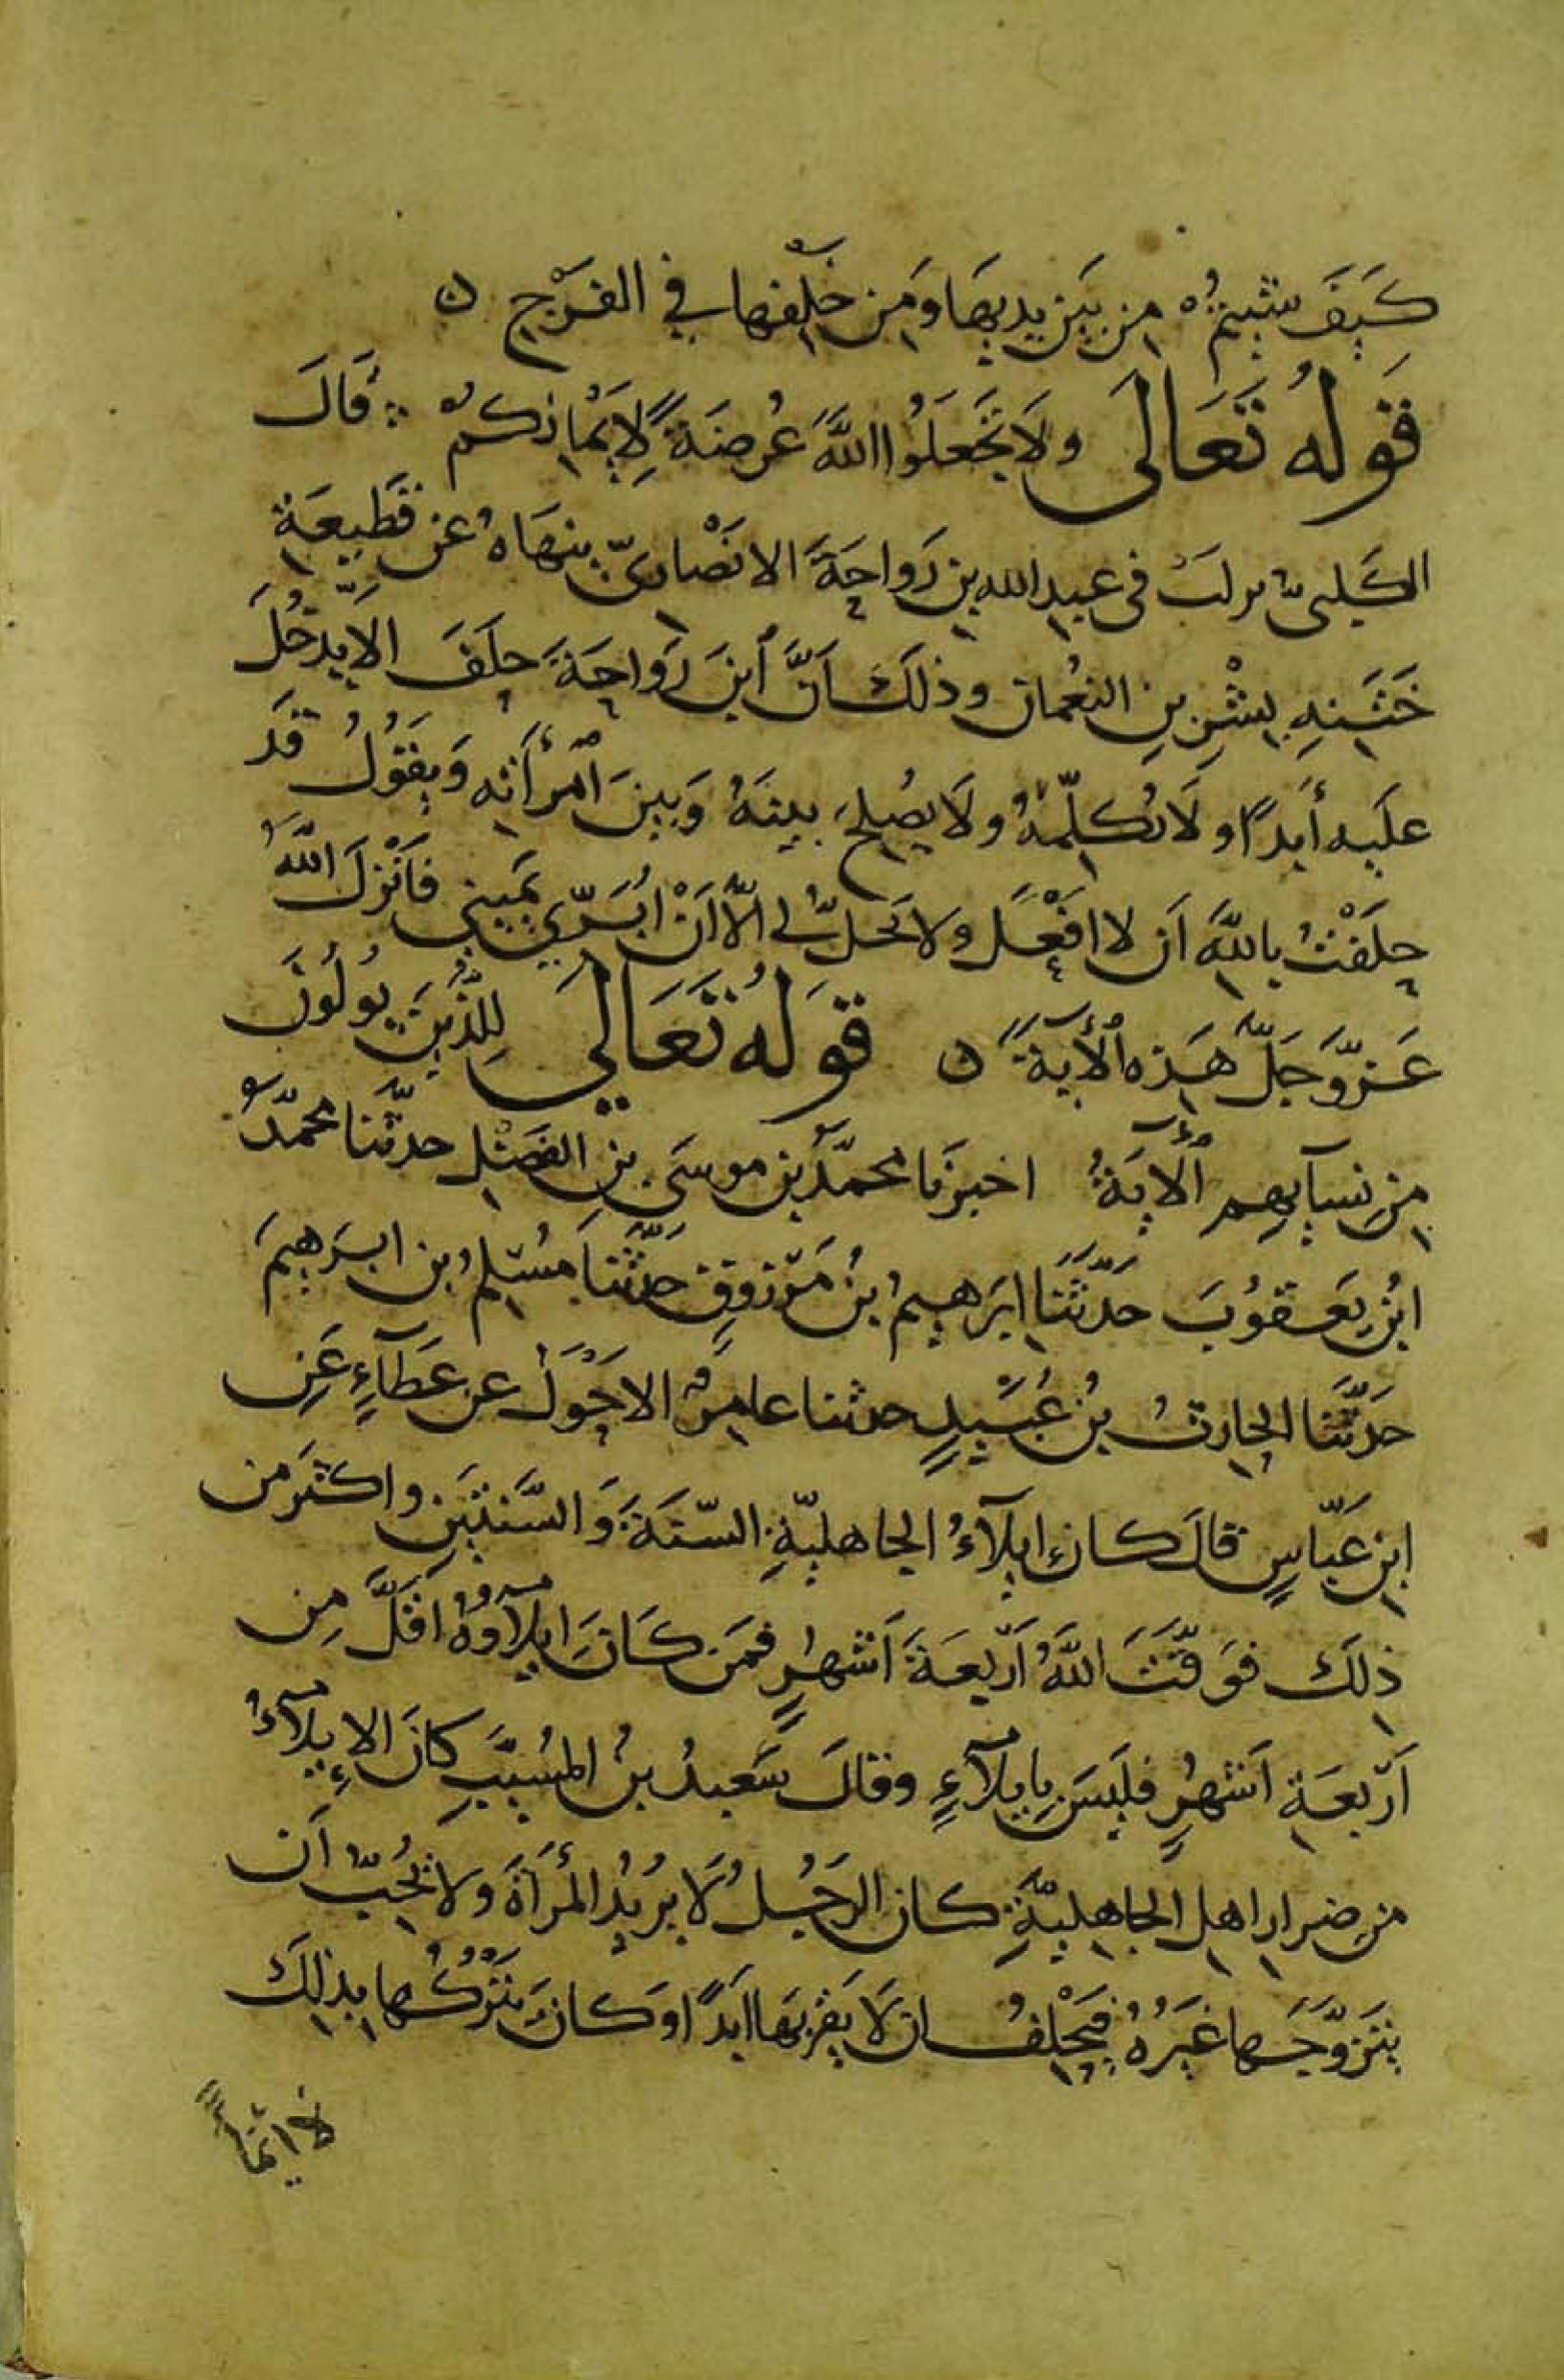 كَيفَ شئتمُ من بَين يديهَا ومَن خلفها في الفَرْجِ ه
قَولهُ تَعَالى ولَا تَجَعَلُوا اللهَ عُرضَةً لِأَيْمَانكمْ ∴ قالَ
الكَلبيّ نزلَت في عبدالله بن رَواحَةَ الانصَاريّ ينهَاهُ عَن قَطيعَةِ
خَتَنِهِ بِشْرِ بنِ النعُمان وذلكَ أَنَّ ابنَ رَواحَةَ حلَفَ الاَّ يدْخُلَ
علَيه أَبدًا ولَا يُكلِّمَهُ ولَا يصُلحَ بينَهُ وَبينَ اَمْرأَتهِ وَيقَوُلُ قَد
حلَفْتُ باللهِ اَن لا افْعَل ولا يَحلُّ لي الّا اَنْ ابَرَّ في يَميني فَاَنْزلَ اللهُ
عَزَّوَجَلَّ هَذه الْأيةَ ه قَولهُ تَعَالى لِلَّذينَ يُولُونَ
مِن نِسَآيهِم الْأيَةُ اخبرنَا محمّدُ بن موسَى بنِ الفَضْلِ حدثَّنا محمّدُ
ابنُ يَعقوُبَ حَدَّثَنَا ابرَهيمُ بنُ مَرْزوقٍ حَدَّثَنا مُسْلمُ بن ابرَهيمَ
حَدَّثَنا الحارثُ بنُ عُبَيْدٍ حدثنا عامِرٌ الاحَوَلُ عن عَطَآءٍ عَنِ
ابن عَبّاسٍ قالَ كانَ ايلَآءُ الجاهليّةِ السّنَةَ وَالسَّنتَينِ واكثرَ من
ذلكَ فوَقّتَ اللهُ اَرْبعَةَ اَشهُرٍ فمَن كَانَ ايلَآوُهُ اَقَلَّ مِن
اَرْبعَةِ اَشهُرٍ فليَسَ بِايلَآءٍ وقالَ سَعيدُ بنُ المُسيَّبِ كانَ الإيلَآءُ
من ضِرار اهل الجاهِليّةِ كان الرجُلُ لَا يُريدُ المْرأَةَ ولَا يُحبُّ اَن
يتَزوَّجَها غَيرُهُ فيَحْلفُ ان لَا يقَرَبهَا ابَدًا وَكانَ يتْركُها بذلكَ
لَا ايّماً